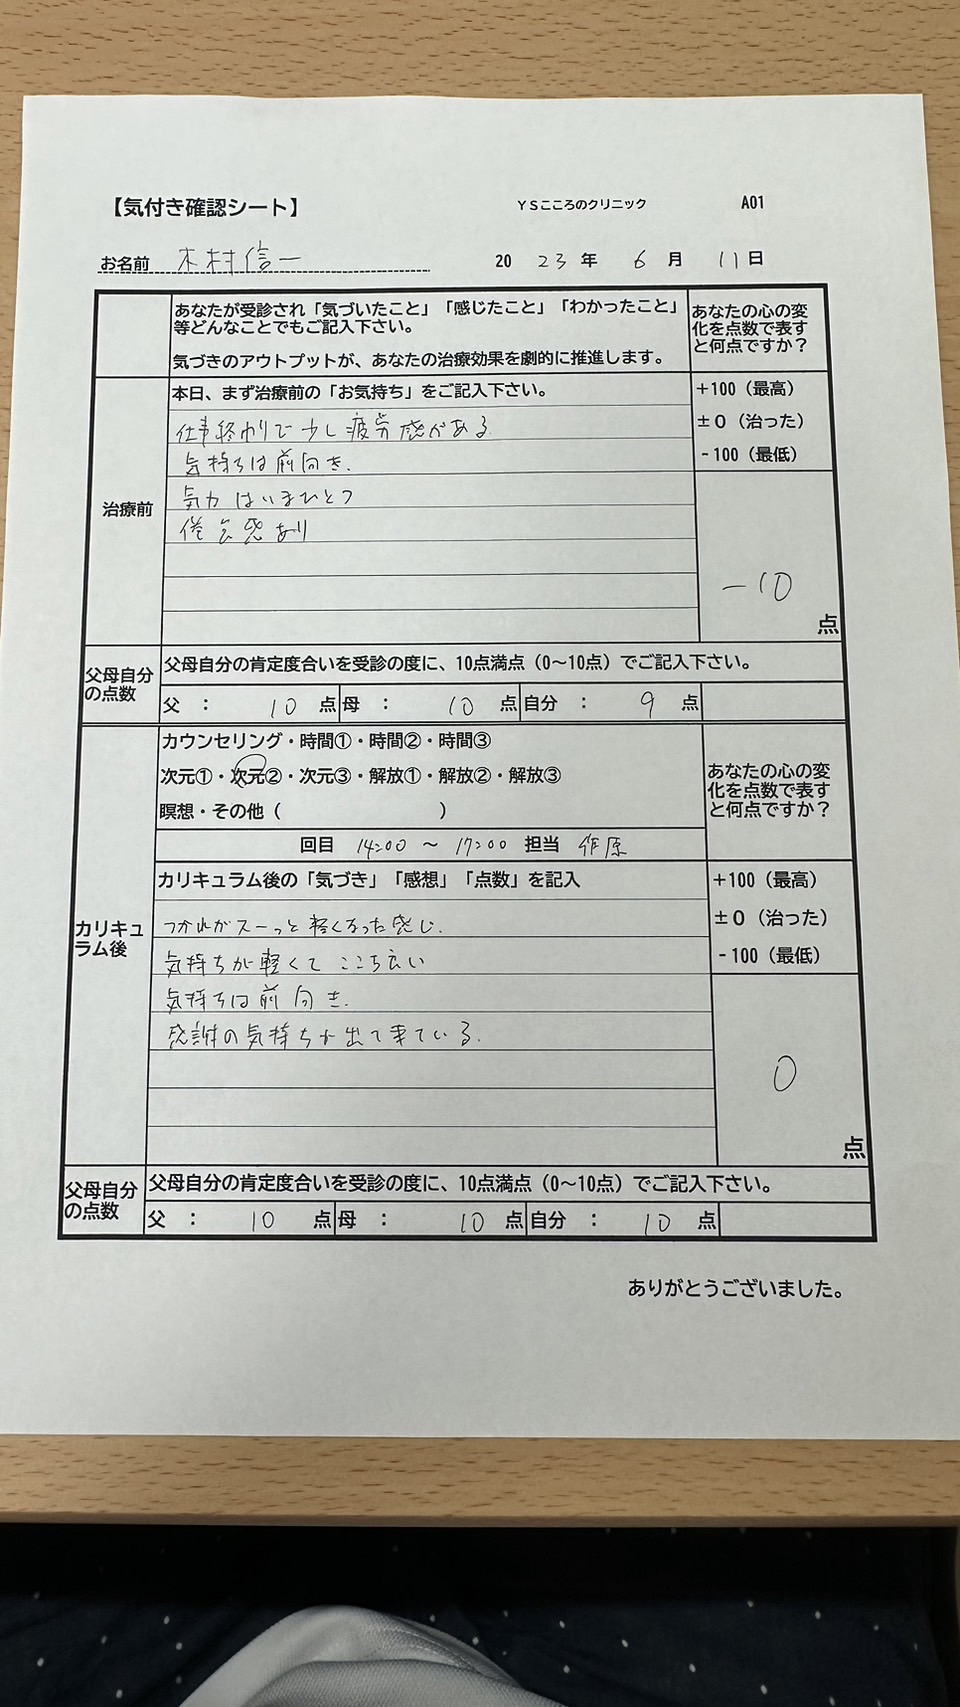 【気付き確認シート】 YSこころのクリニック A01
お名前 木村信一 2023年 6月 11日
あなたが受診され「気づいたこと」「感じたこと」「わかったこと」
等どんなことでもご記入下さい。
気づきのアウトプットが、あなたの治療効果を劇的に推進します。
あなたの心の変
化を点数で表す
と何点ですか？
治療前
本日、まず治療前の「お気持ち」をご記入下さい。
仕事終わりで少し疲労感がある
気持ちは前向き.
気力はいまひとつ
倦怠感あり
+100（最高）
±０（治った）
-100（最低）
-10
点
父母自分
の点数
父母自分の肯定度合いを受診の度に、10点満点（0〜10点）でご記入下さい。
父 ： 10 点 母 ： 10 点 自分 ： 9 点
カリキュ
ラム後
カウンセリング・時間①・時間②・時間③
次元①・次元②・次元③・解放①・解放②・解放③
瞑想・その他（ ）
回目 14:00 〜 17:00 担当 作原
あなたの心の変
化を点数で表す
と何点ですか？
カリキュラム後の「気づき」「感想」「点数」を記入
つかれがスーっと軽くなった感じ.
気持ちが軽くて ここち良い
気持ちは前向き.
感謝の気持ちが出て来ている.
+100（最高）
±０（治った）
-100（最低）
0
点
父母自分
の点数
父母自分の肯定度合いを受診の度に、10点満点（0〜10点）でご記入下さい。
父 ： 10 点 母 ： 10 点 自分 ： 10 点
ありがとうございました。